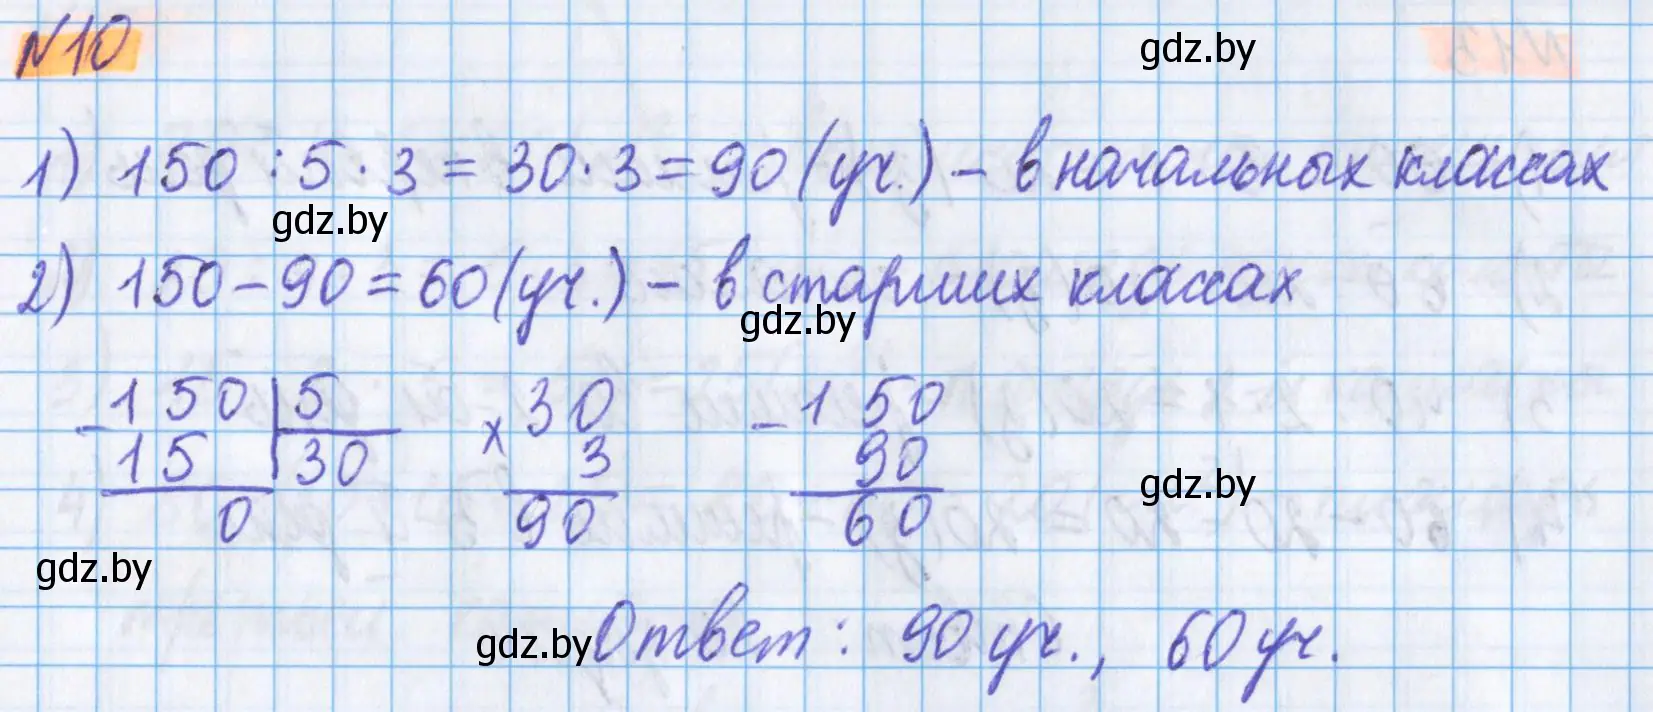 №10
gdz.by
1) 150 : 5 · 3 = 30 · 3 = 90 (уч.) – в начальных классах
gdz.by
2) 150 – 90 = 60 (уч.) – в старших классах
gdz.by
– 150 | 5 × 30 – 150
15 | 30 3 90
0 90 60
gdz.by
gdz.by
gdz.by Ответ: 90 уч., 60 уч.